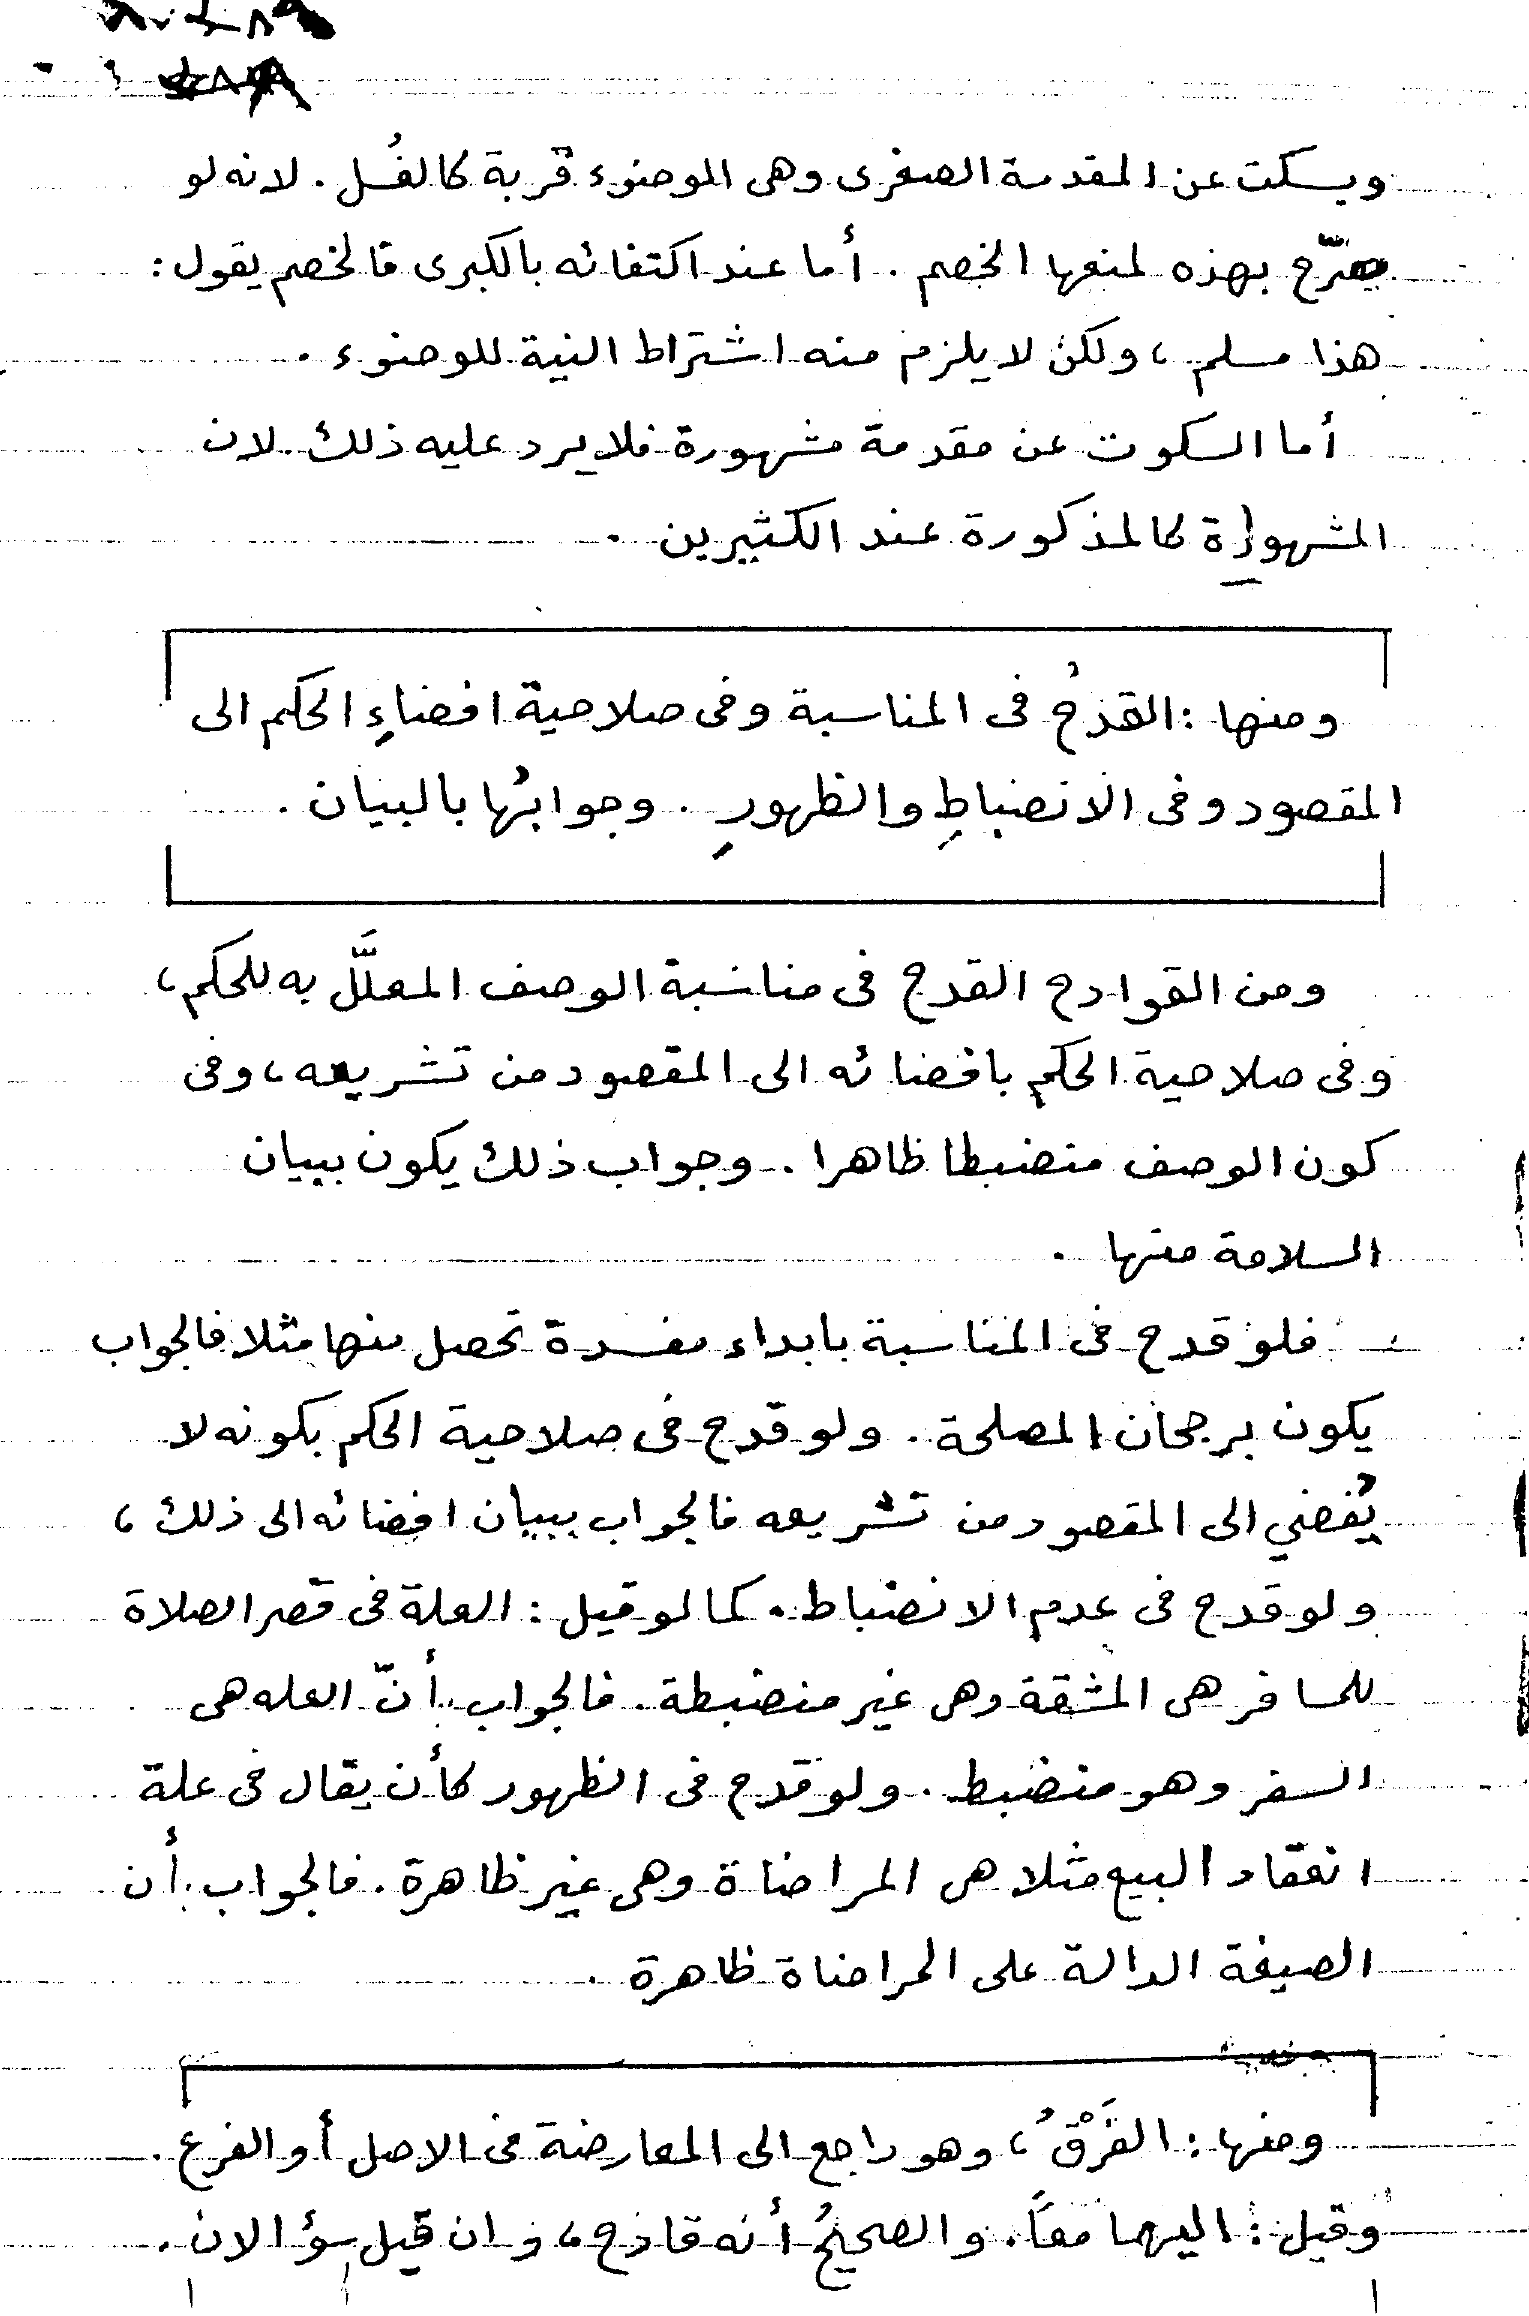 ويسكت عن المقدمة الصغرى وهى الوضوء قربة كالغُسل. لانه لو
صرّح بهذه لمنعها الخصم. أما عند اكتفائه بالكبرى فالخصم يقول:
هذا مسلم، ولكن لا يلزم منه اشتراط النية للوضوء.
أما السكوت عن مقدمة مشهورة فلا يرد عليه ذلك لان
المشهورة كالمذكورة عند الكثيرين.
ومنها: القدحُ فى المناسبة وفى صلاحية افضاءِ الحكم الى
المقصود وفى الانضباطِ والظهورِ. وجوابُها بالبيان.
ومن القوادح القدح فى مناسبة الوصف المعلَّل به للحكم،
وفى صلاحية الحكم بافضائه الى المقصود من تشريعه، وفى
كون الوصف منضبطا ظاهرا. وجواب ذلك يكون ببيان
السلامة منها.
فلو قدح فى المناسبة بابداء مفسدة تحصل منها مثلا فالجواب
يكون برجحان المصلحة. ولو قدح فى صلاحية الحكم بكونه لا
يُفضي الى المقصود من تشريعه فالجواب ببيان افضائه الى ذلك،
ولو قدح فى عدم الانضباط. كما لو قيل: العلة فى قصر الصلاة
للمسافر هى المشقة وهى غير منضبطة. فالجواب أنّ العله هى
السفر وهو منضبط. ولو قدح فى الظهور كأن يقال فى علة
انعقاد البيع مثلا هى المراضاة وهى غير ظاهرة. فالجواب أن
الصيغة الدالة على المراضاة ظاهرة.
ومنها: الفَرْقُ، وهو راجع الى المعارضة فى الاصل أو الفرع.
وقيل: اليهما معاً. والصحيحُ أنه قادح، وان قيل سؤالان.